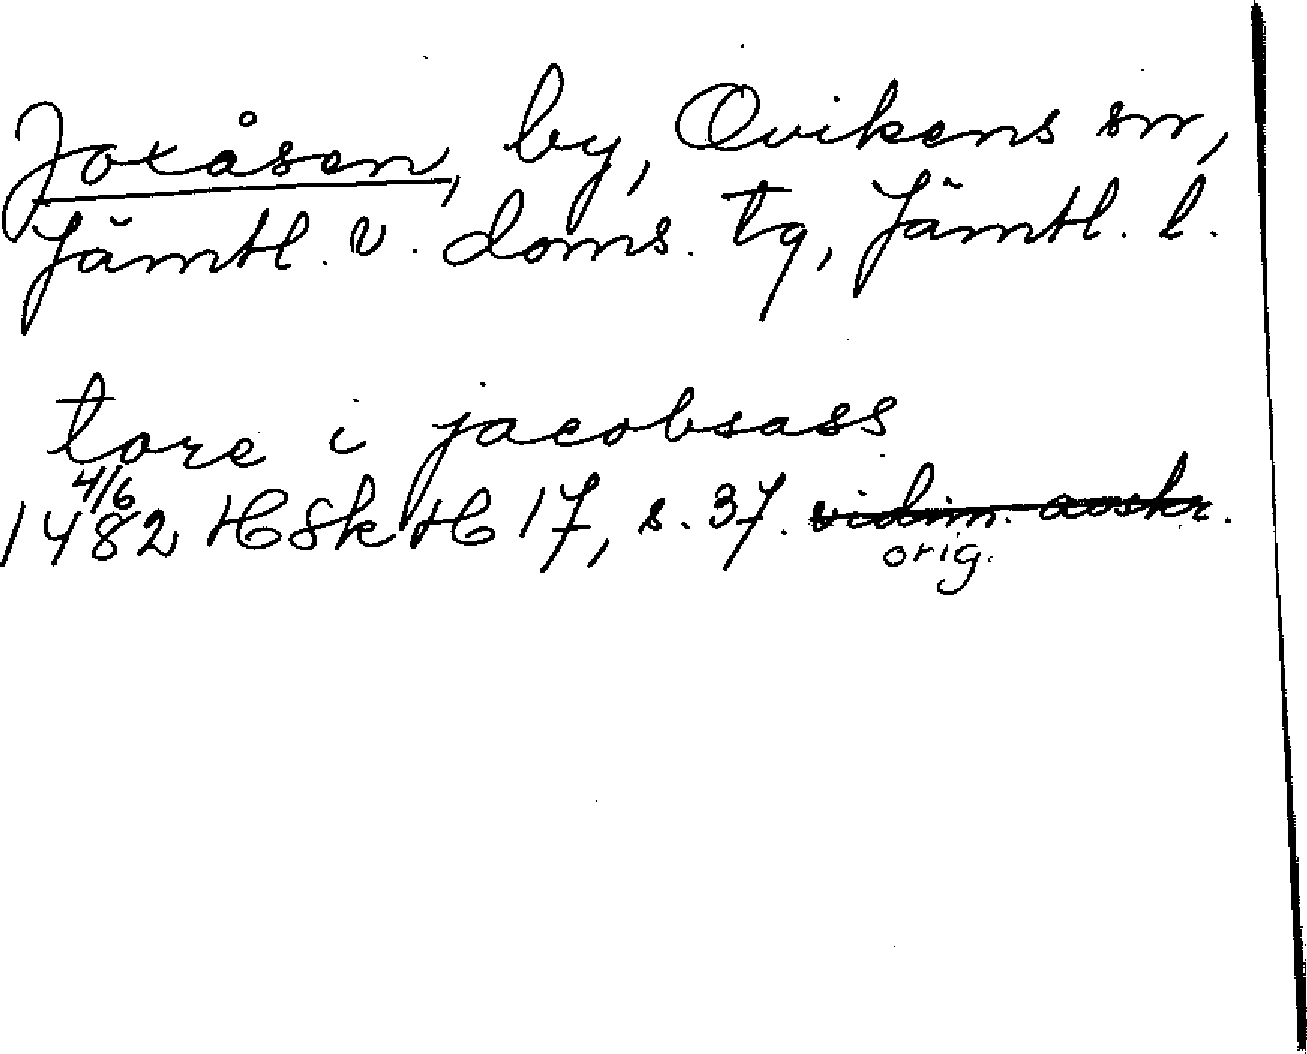 Joxåsen, by, Ovikens sn,
Jämtl. v. doms. tg, Jämtl. l.
tore i jacobsass
4/6
1482 HSk H 17, s. 37. vidim. avskr.
orig.